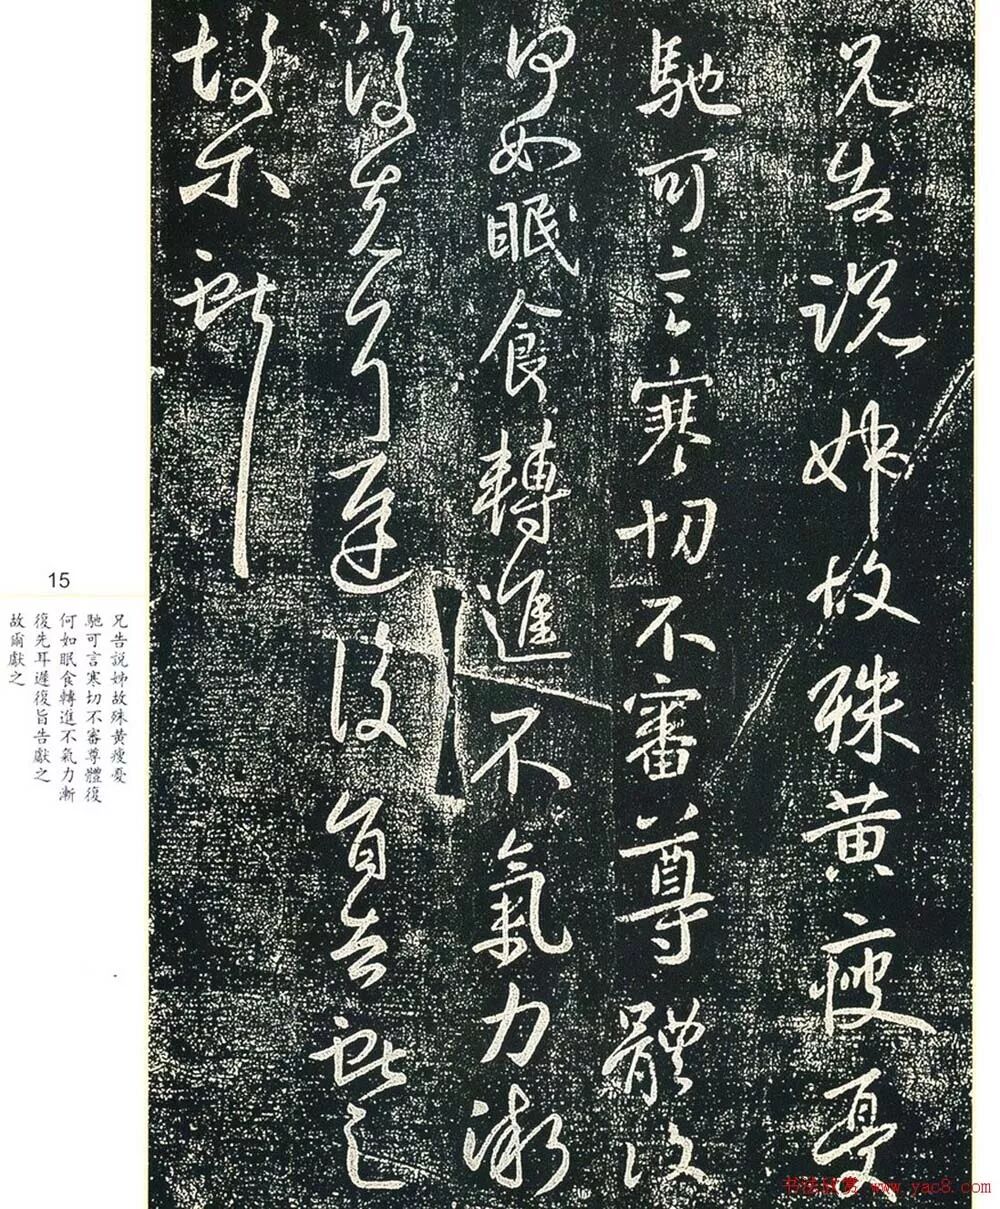 兄告説姊故殊黄瘦憂
馳可言寒切不審尊體復
何如眠食轉進不氣力漸
復先耳遲復旨告獻之
故尒獻之
15
兄告説姊故殊黄瘦憂
馳可言寒切不審尊體復
何如眠食轉進不氣力漸
復先耳遲復旨告獻之
故爾獻之
书法欣赏 www.yac8.com